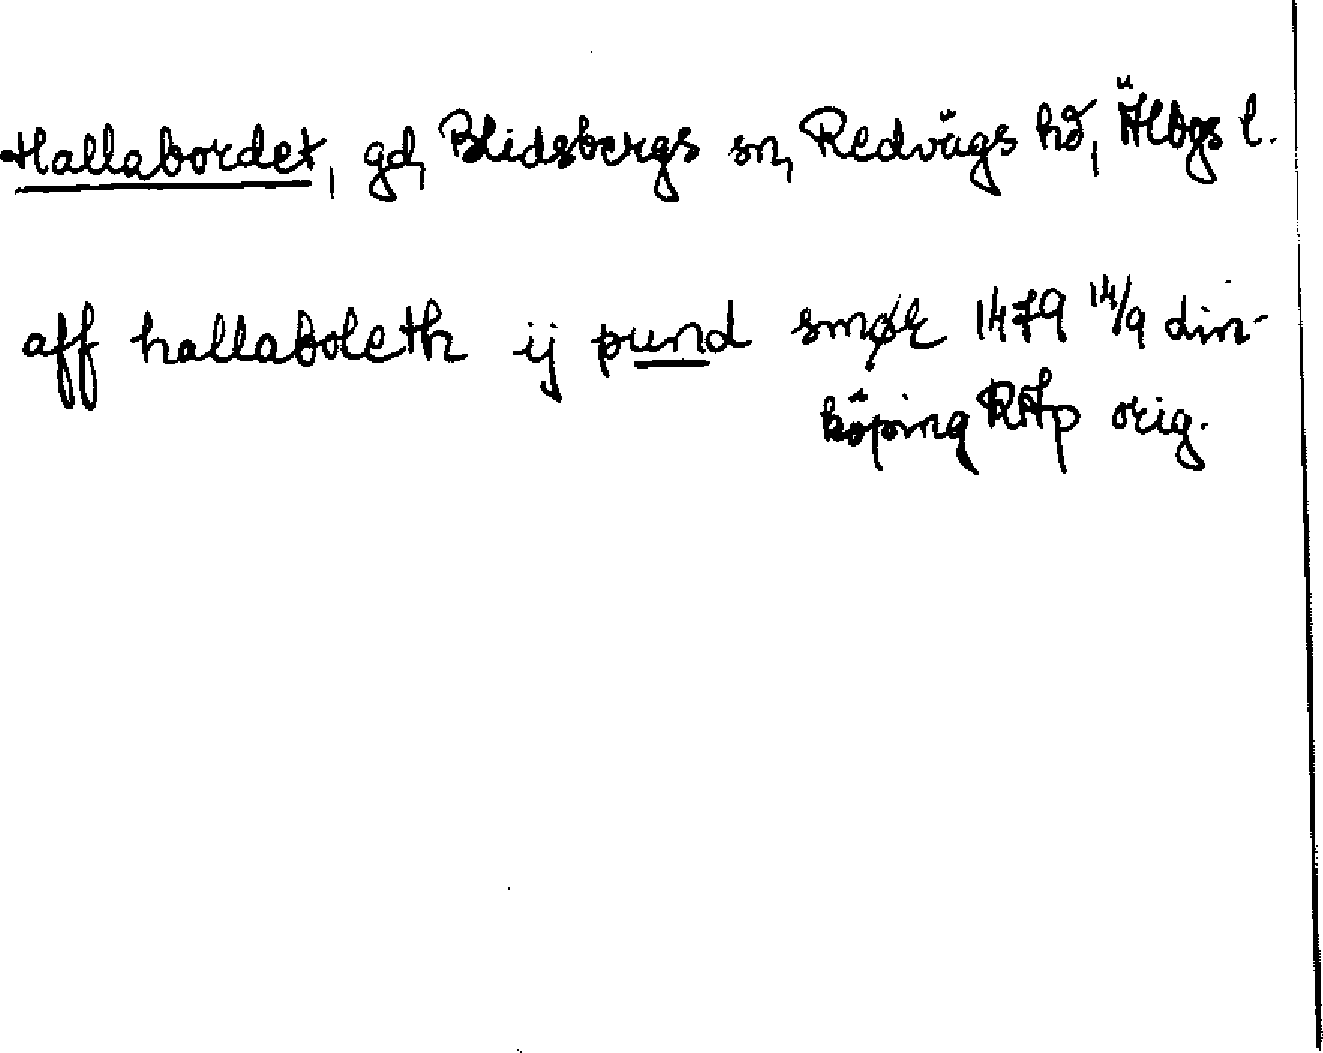 Hallabordet, gd, Blidsbergs sn, Redvägs hd, Älvbgs l.
aff hallaboleth ij pund smør 1479 14/9 Lin-
köping RAp orig.